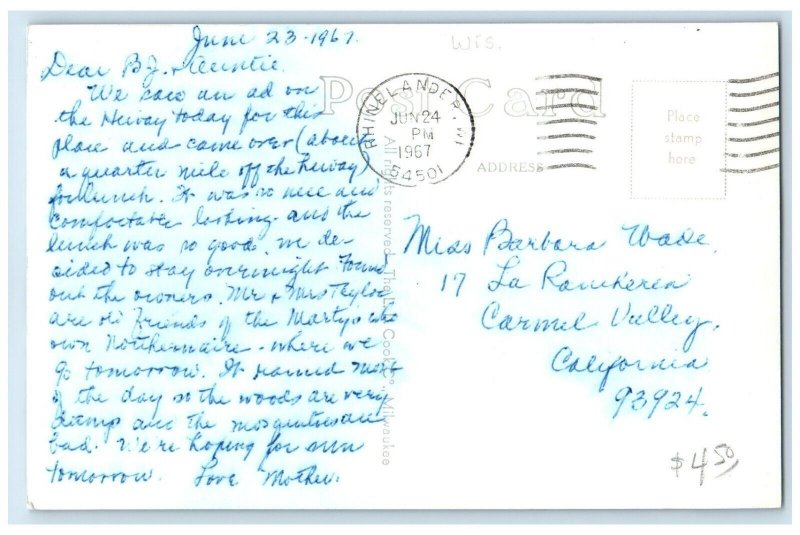 June 23-1967.
Wis.
Dear B.J. + Auntie.
We saw an ad on
the Hiway today for this
place and came over (about
a quarter mile off the hiway)
for lunch. It was so nice and
comfortable looking - and the
lunch was so good, we de-
sided to stay overnight. Found
out the owners, Mr + Mrs Taylor
are old friends of the Martys who
own Northernaire - where we
go tomorrow. It rained most
of the day so the woods are very
damp and the mosquitoes are
bad. We're hoping for sun
tomorrow. Love Mother.
Post Card
RHINELANDER, WI
JUN 24
PM
1967
54501
ADDRESS
Place
stamp
here
All rights reserved, The L. L. Cook Co., Milwaukee
Miss Barbara Wade.
17 La Rancheria
Carmel Valley.
California
93924.
$4.50